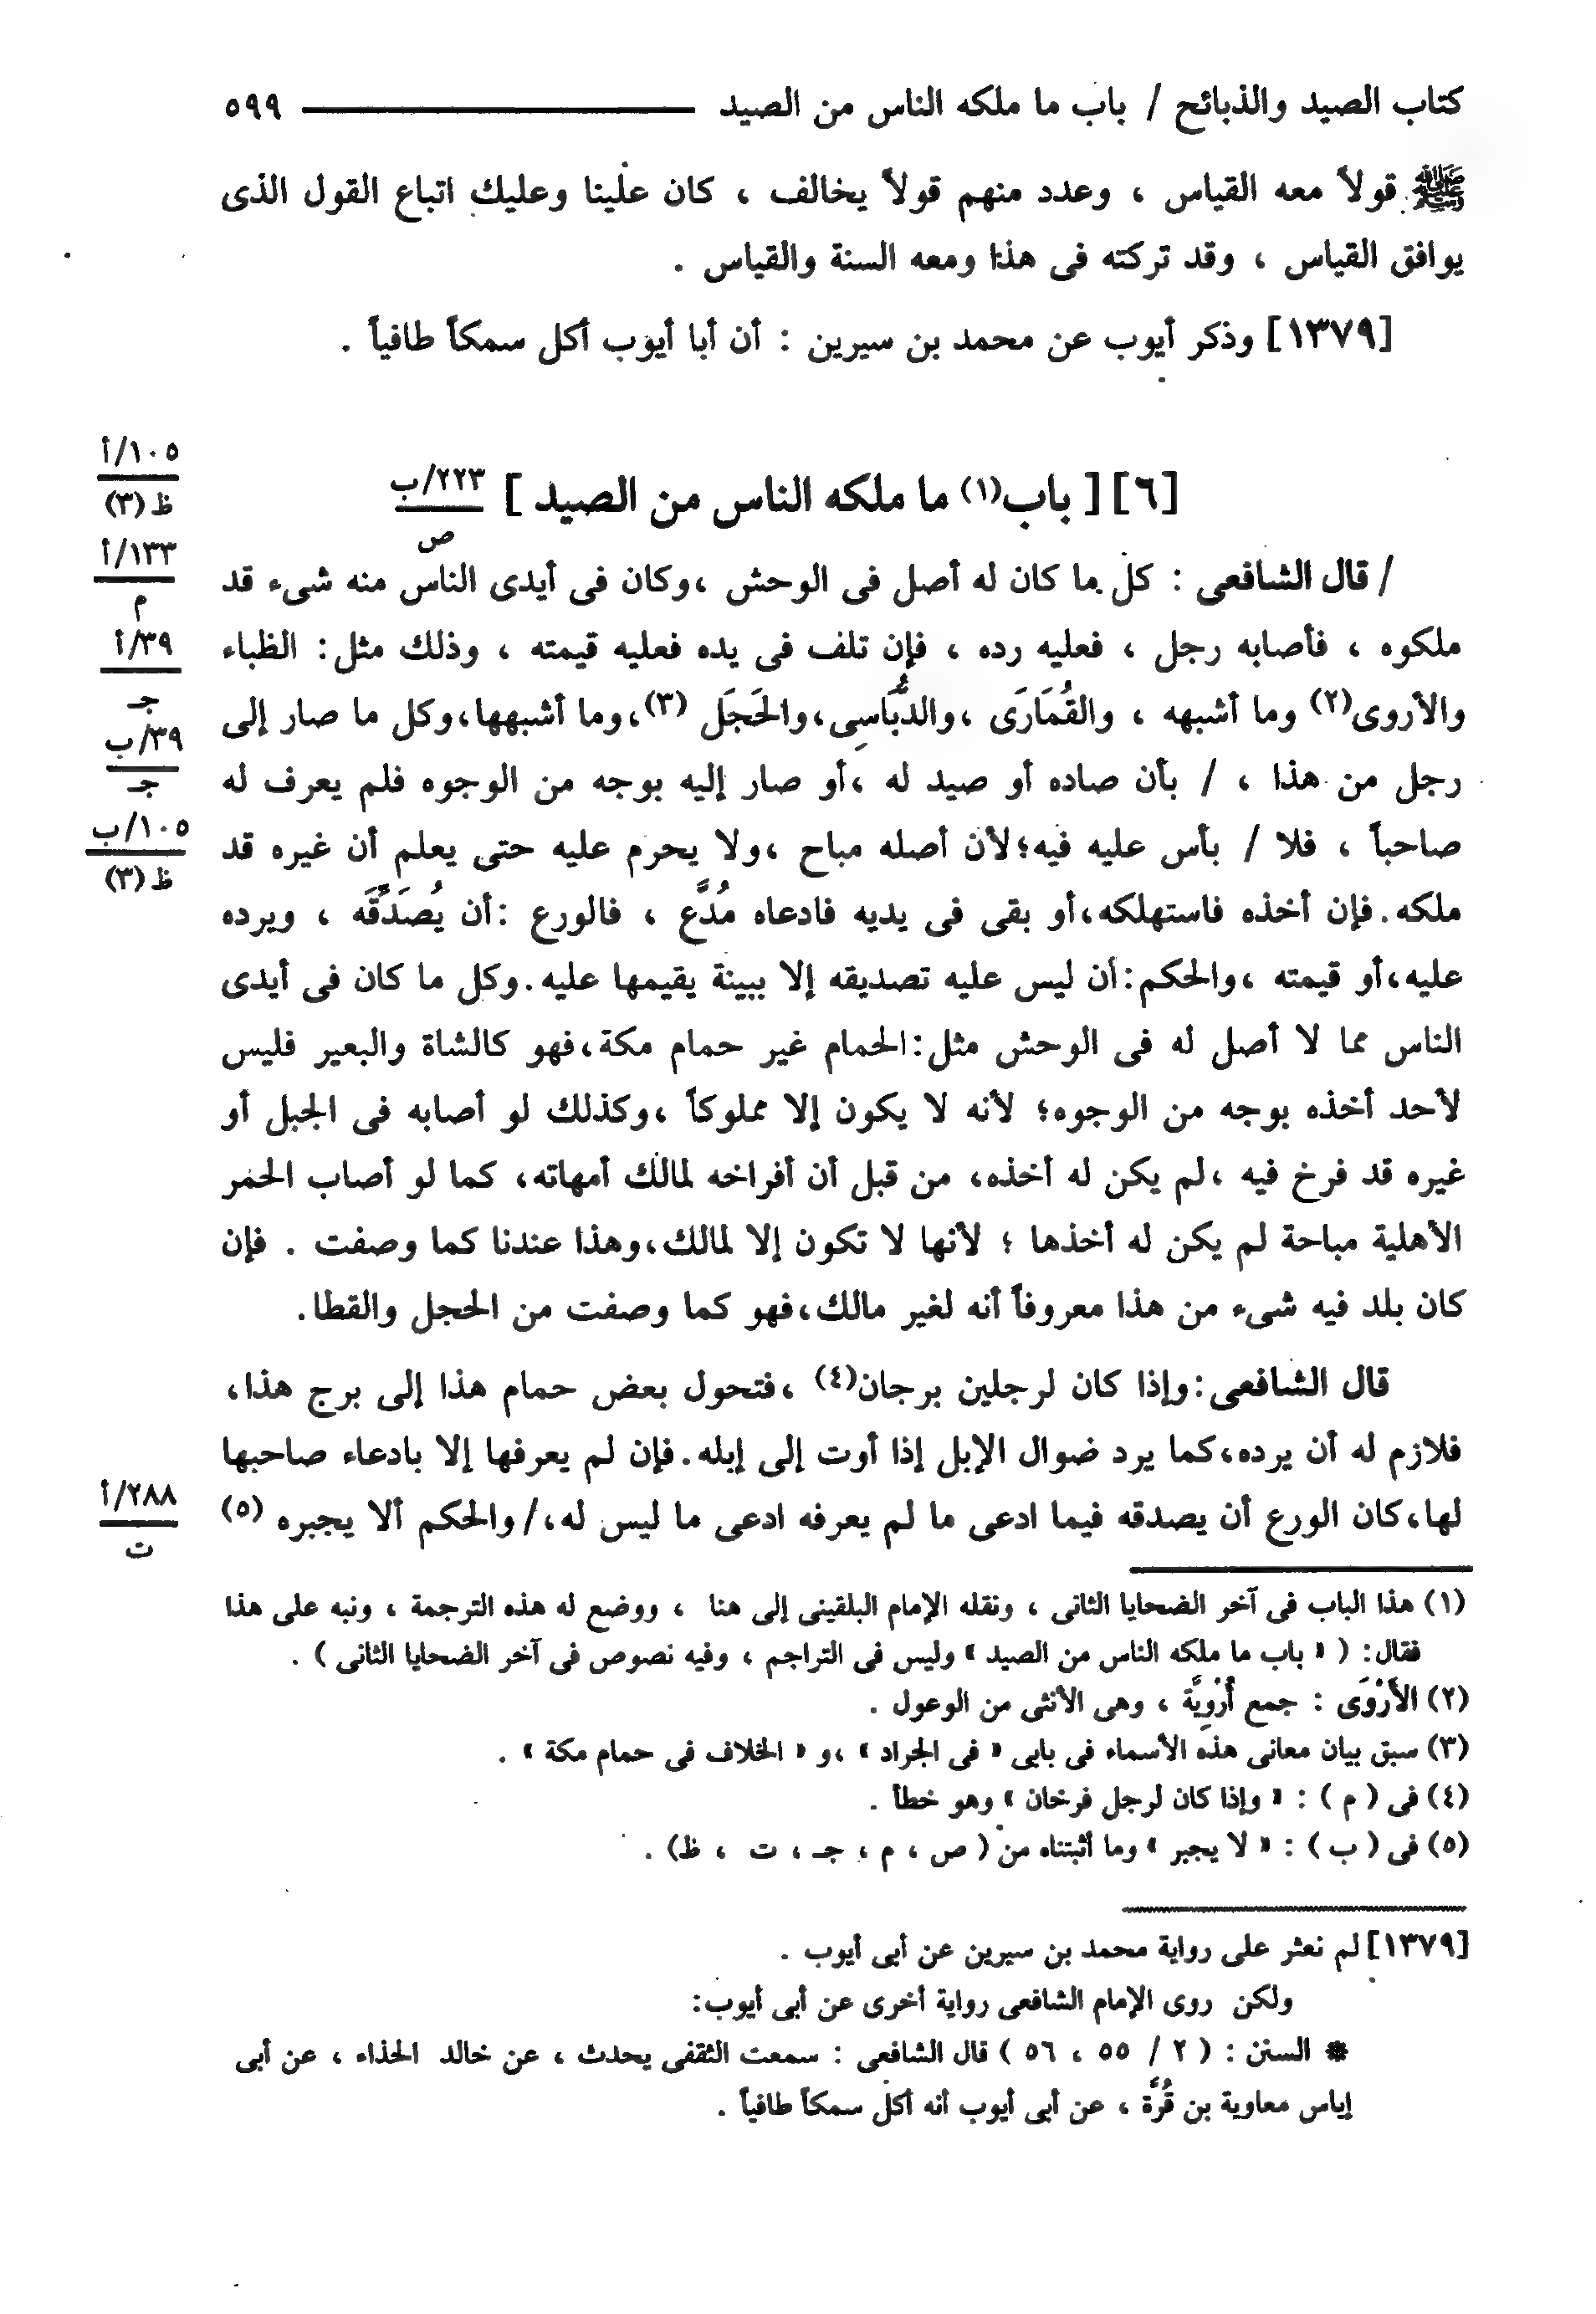 كتاب الصيد والذبائح / باب ما ملكه الناس من الصيد ٥٩٩
ﷺ قولاً معه القياس ، وعدد منهم قولاً يخالف ، كان علينا وعليك اتباع القول الذى
يوافق القياس ، وقد تركته فى هذا ومعه السنة والقياس .
[١٣٧٩] وذكر أيوب عن محمد بن سيرين : أن أبا أيوب أكل سمكاً طافياً .
[٦] [ باب(١) ما ملكه الناس من الصيد ] ٢٢٣/ب
ص
١٠٥/أ
ظ (٣)
١٣٣/أ
م
٣٩/أ
جـ
٣٩/ب
جـ
١٠٥/ب
ظ (٣)
/ قال الشافعى : كل ما كان له أصل فى الوحش ،وكان فى أيدى الناس منه شىء قد
ملكوه ، فأصابه رجل ، فعليه رده ، فإن تلف فى يده فعليه قيمته ، وذلك مثل: الظباء
والأروى(٢) وما أشبهه ، والقُمَارَى ،والدُّبَّاسِى،والحَجَل (٣)،وما أشبهها،وكل ما صار إلى
رجل من هذا ، / بأن صاده أو صيد له ،أو صار إليه بوجه من الوجوه فلم يعرف له
صاحباً ، فلا / بأس عليه فيه؛لأن أصله مباح ،ولا يحرم عليه حتى يعلم أن غيره قد
ملكه.فإن أخذه فاستهلكه،أو بقى فى يديه فادعاه مُدَّع ، فالورع :أن يُصَدِّقَه ، ويرده
عليه،أو قيمته ،والحكم:أن ليس عليه تصديقه إلا ببينة يقيمها عليه.وكل ما كان فى أيدى
الناس مما لا أصل له فى الوحش مثل:الحمام غير حمام مكة،فهو كالشاة والبعير فليس
لأحد أخذه بوجه من الوجوه؛ لأنه لا يكون إلا مملوكاً ،وكذلك لو أصابه فى الجبل أو
غيره قد فرخ فيه ،لم يكن له أخذه، من قبل أن أفراخه لمالك أمهاته، كما لو أصاب الحمر
الأهلية مباحة لم يكن له أخذها ؛ لأنها لا تكون إلا لمالك،وهذا عندنا كما وصفت . فإن
كان بلد فيه شىء من هذا معروفاً أنه لغير مالك،فهو كما وصفت من الحجل والقطا.
قال الشافعى:وإذا كان لرجلين برجان(٤) ،فتحول بعض حمام هذا إلى برج هذا،
فلازم له أن يرده،كما يرد ضوال الإبل إذا أوت إلى إبله.فإن لم يعرفها إلا بادعاء صاحبها
لها،كان الورع أن يصدقه فيما ادعى ما لم يعرفه ادعى ما ليس له،/والحكم ألا يجبره (٥)
٢٨٨/أ
ت
(١) هذا الباب فى آخر الضحايا الثانى ، ونقله الإمام البلقينى إلى هنا ، ووضع له هذه الترجمة ، ونبه على هذا
فقال: ( « باب ما ملكه الناس من الصيد » وليس فى التراجم ، وفيه نصوص فى آخر الضحايا الثانى ) .
(٢) الأَرْوَى : جمع أُرْوِيَّة ، وهى الأنثى من الوعول .
(٣) سبق بيان معانى هذه الأسماء فى بابى « فى الجراد » ،و « الخلاف فى حمام مكة » .
(٤) فى ( م ) : « وإذا كان لرجل فرخان » وهو خطأ .
(٥) فى ( ب ) : « لا يجبر » وما أثبتناه من ( ص ، م ، جـ ، ت ، ظ) .
[١٣٧٩] لم نعثر على رواية محمد بن سيرين عن أبى أيوب .
ولكن روى الإمام الشافعى رواية أخرى عن أبى أيوب:
* السنن : ( ٢ / ٥٥ ، ٥٦ ) قال الشافعى : سمعت الثقفى يحدث ، عن خالد الحذاء ، عن أبى
إياس معاوية بن قُرَّة ، عن أبى أيوب أنه أكل سمكاً طافياً .